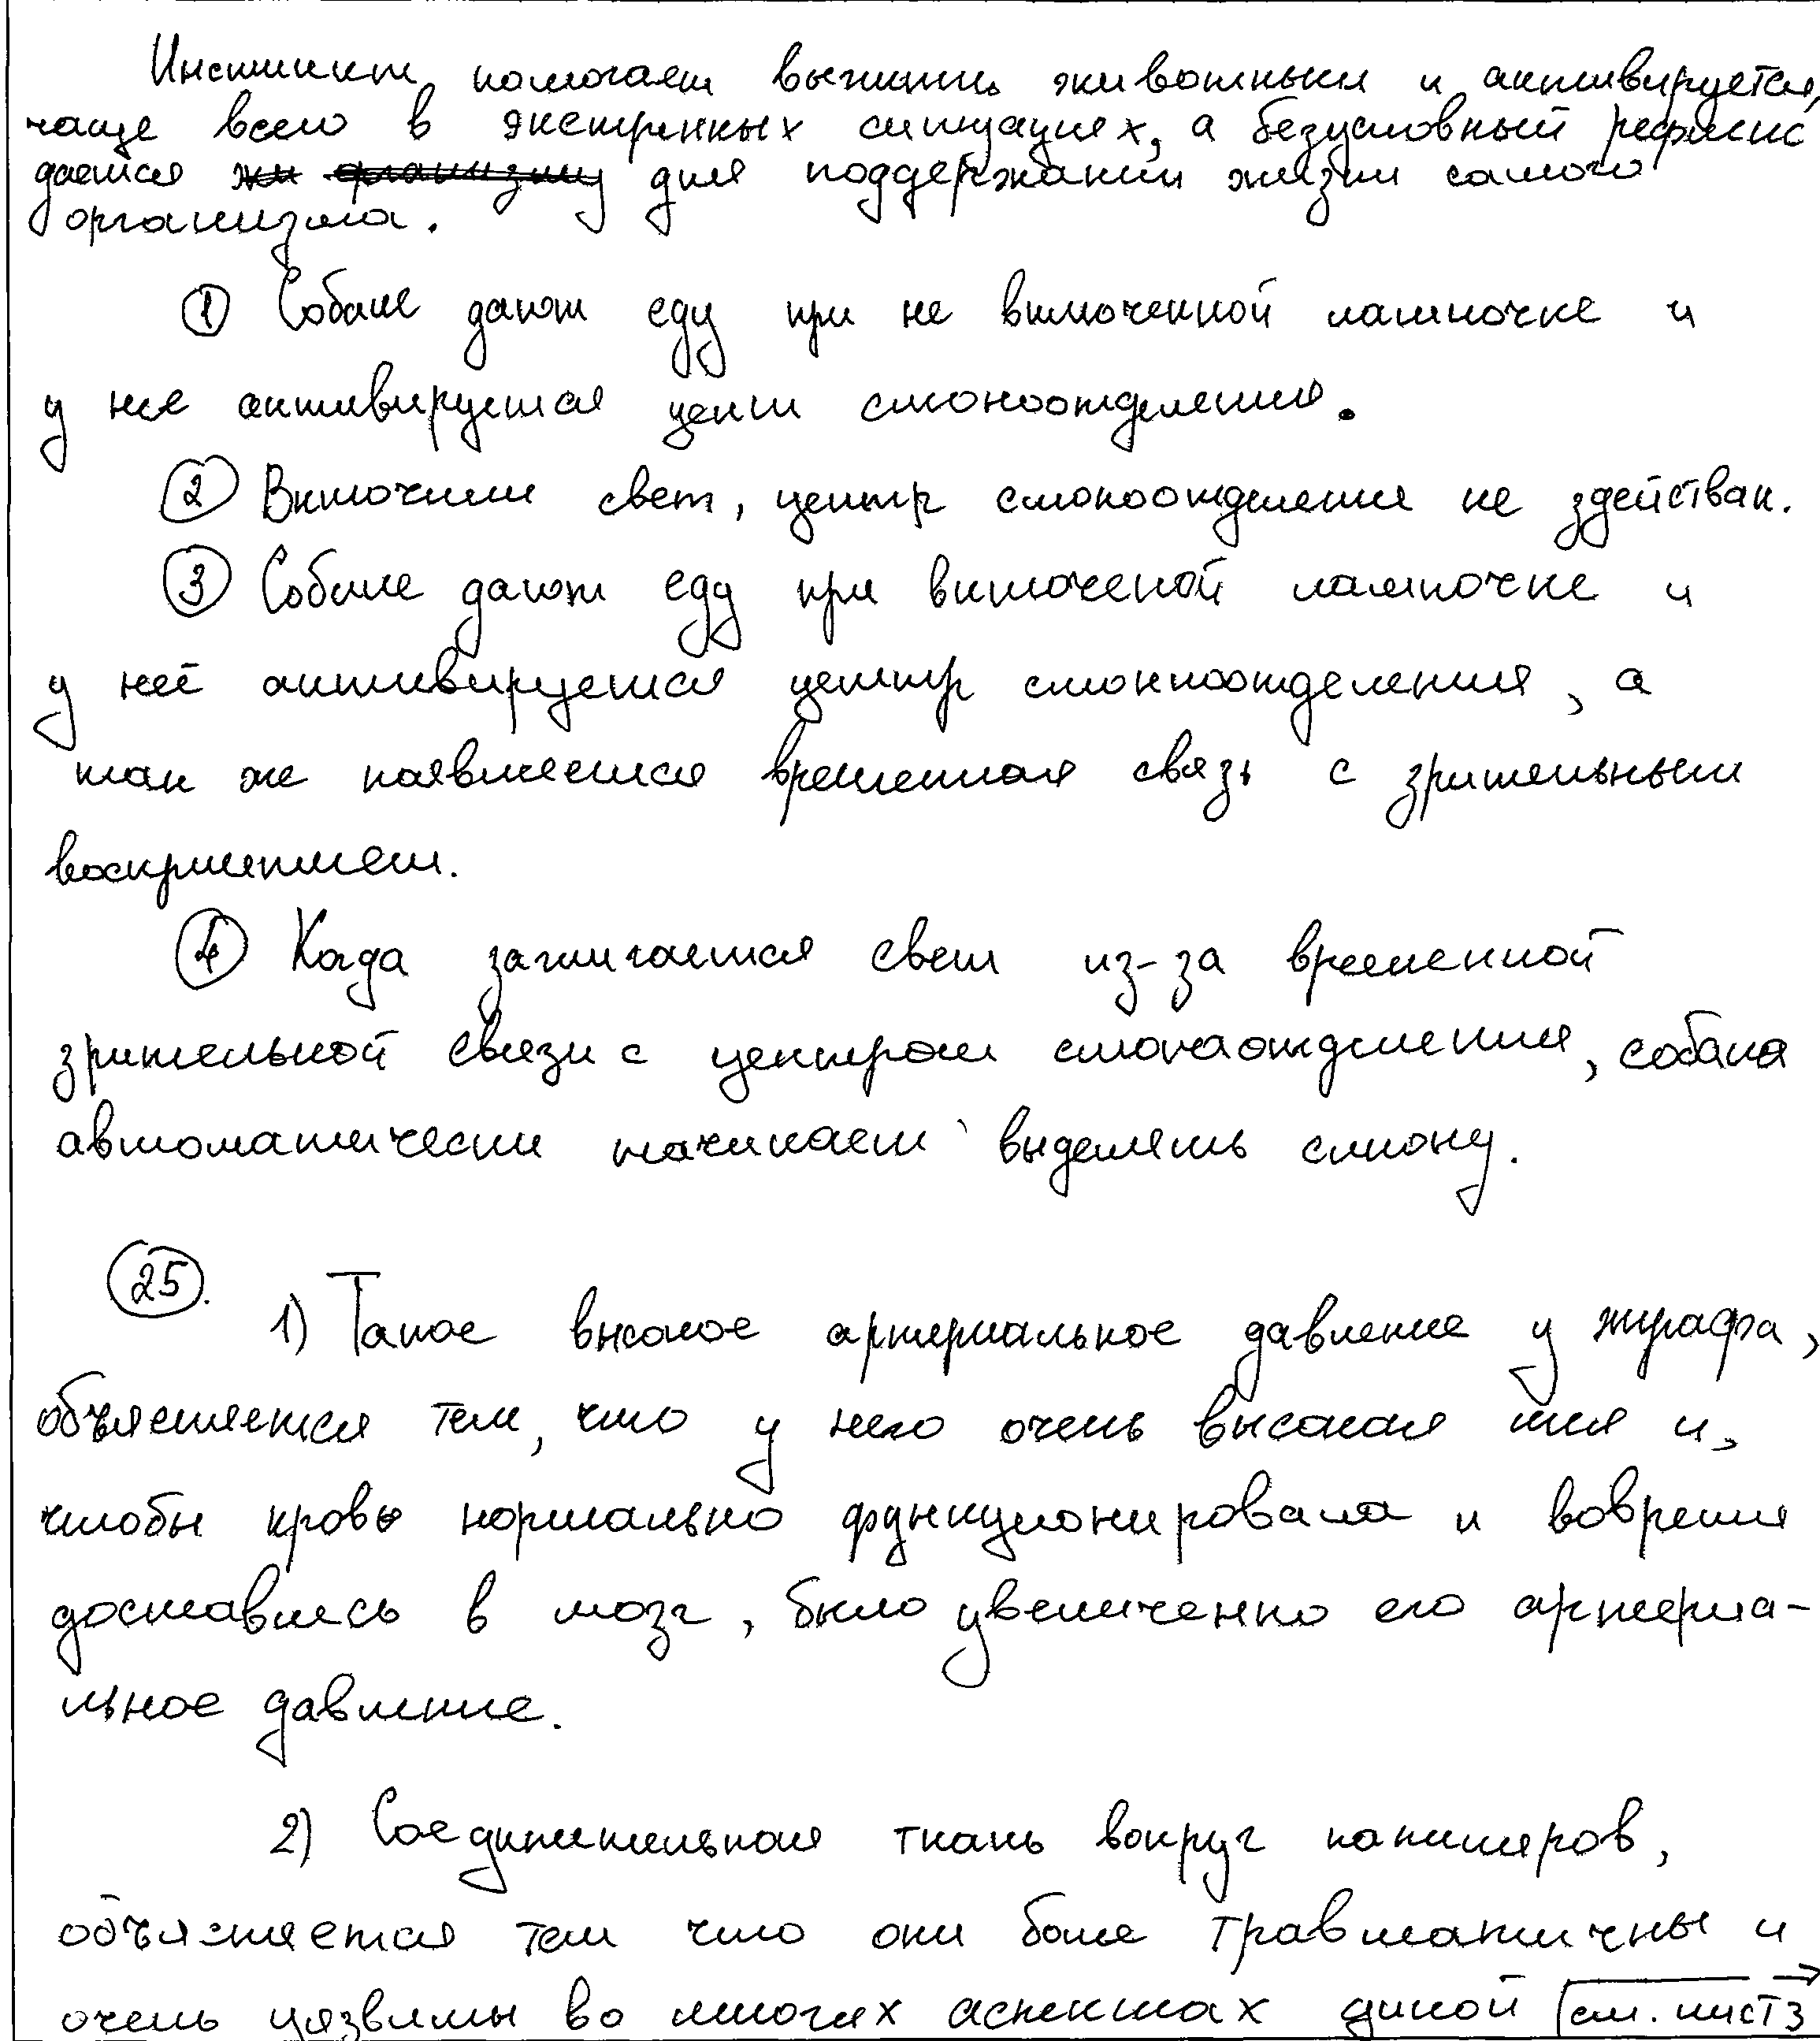 Инстинкт помогает выжить животным и активируется,
чаще всего в экстренных ситуациях, а безусловный рефлекс
даётся для поддержании жизни самого
организма.
① Собаке дают еду при не включенной лампочке и
у нее активируется цент слюноотделения.
② Включили свет, центр слюноотделения не здействан.
③ Собаке дают еду при включеной лампочке и
у неё активируется центр слюноотделения, а
так же появляется временная связь с зрительным
восприятием.
④ Когда зажигается свет из-за временной
зрительной связи с центром слюноотделения, собака
автоматически начинает выделять слюну.
25. 1) Такое высокое артериальное давление у жирафа,
объясняется тем, что у него очень высокая шея и,
чтобы кровь нормально функционировала и вовремя
доставлясь в мозг, было увеличенно его артериа-
льное давление.
2) Соединительная ткань вокруг капиляров,
объясняется тем что они более травматичны и
очень уязвимы во многих аспектах дикой см. лист 3